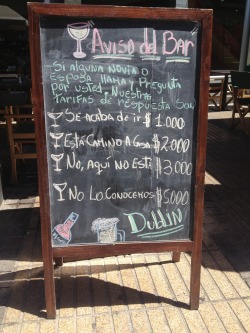 Aviso del Bar
-Si alguna novia o
esposa llama y pregunta
por usted, Nuestras
tarifas de respuesta son
Se acaba de ir $1.000
Está camino a casa $2.000
No, Aquí no está $3.000
No lo conocemos $5.000
Dublin